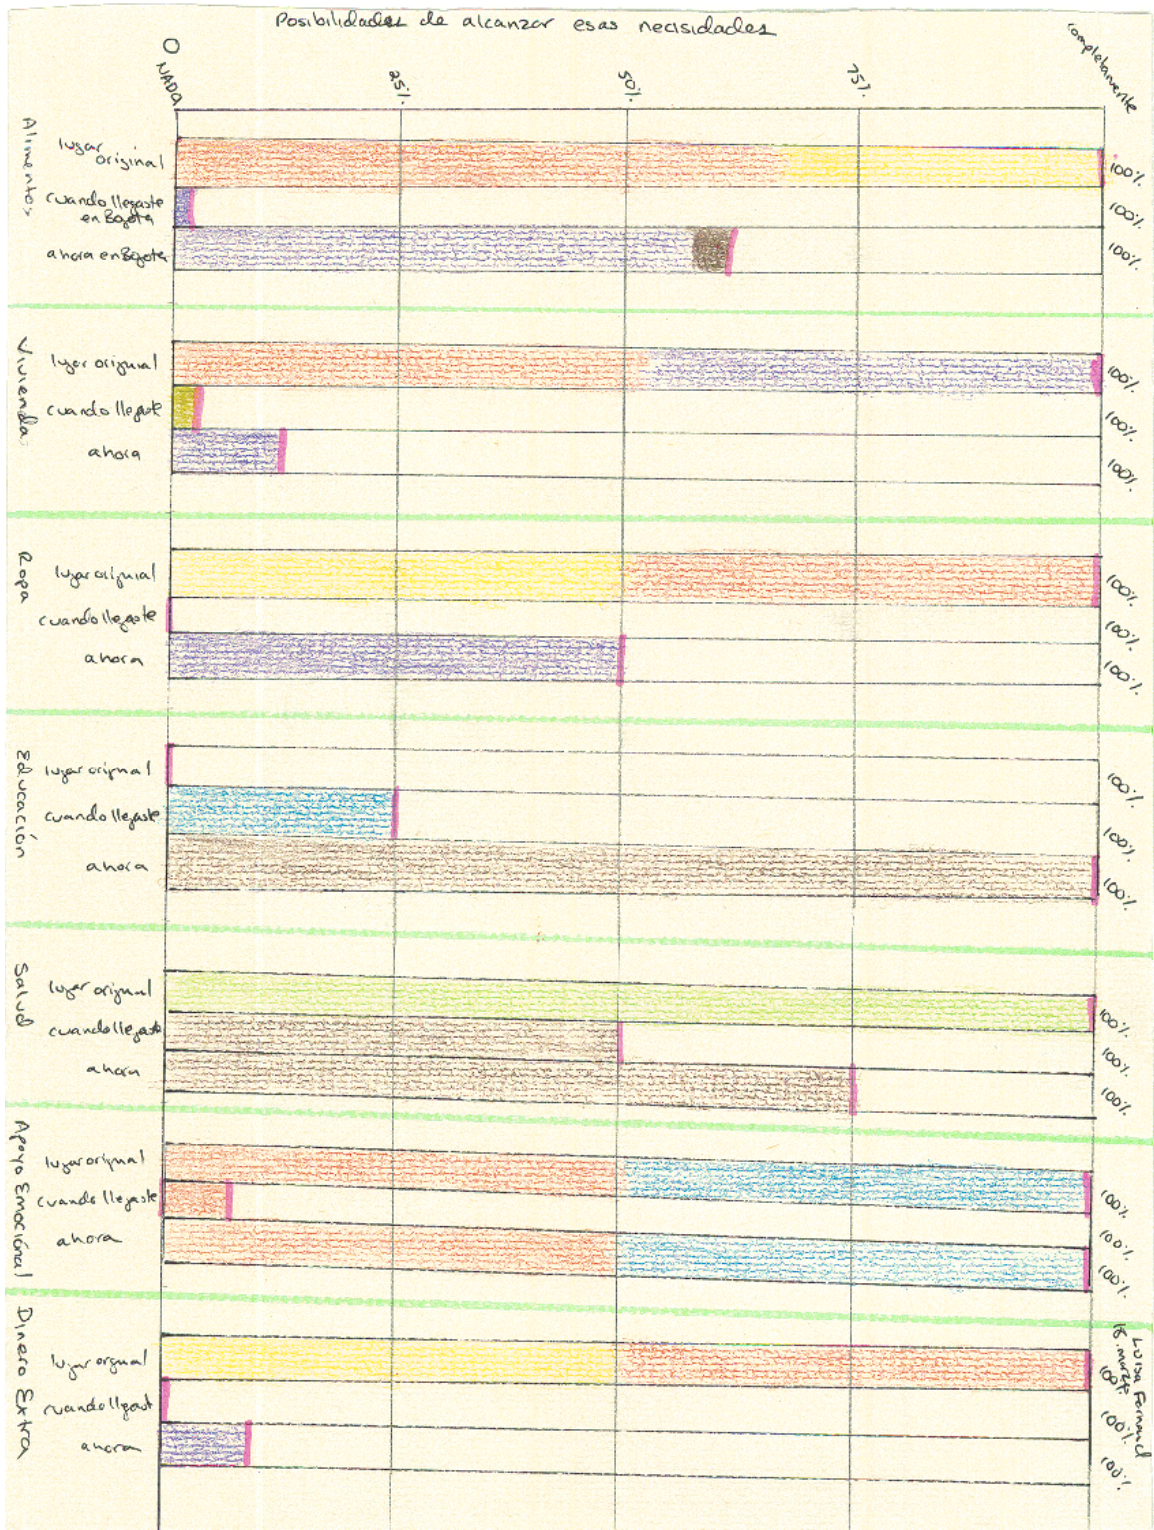 Posibilidades de alcanzar esas necisidades
0 NADA
25%
50%
75%
completamente
Alimentos
lugar original
100%
cuando llegaste en Bogota
100%
ahora en Bogota
100%
Vivienda
lugar original
100%
cuando llegaste
100%
ahora
100%
Ropa
lugar original
100%
cuando llegaste
100%
ahora
100%
Educación
lugar original
100%
cuando llegaste
100%
ahora
100%
Salud
lugar original
100%
cuando llegaste
100%
ahora
100%
Apoyo Emocional
lugar original
100%
cuando llegaste
100%
ahora
100%
Dinero Extra
lugar orgnal
100%
cuando llegast
100%
ahora
100%
Luisa Fernand
18. marzo